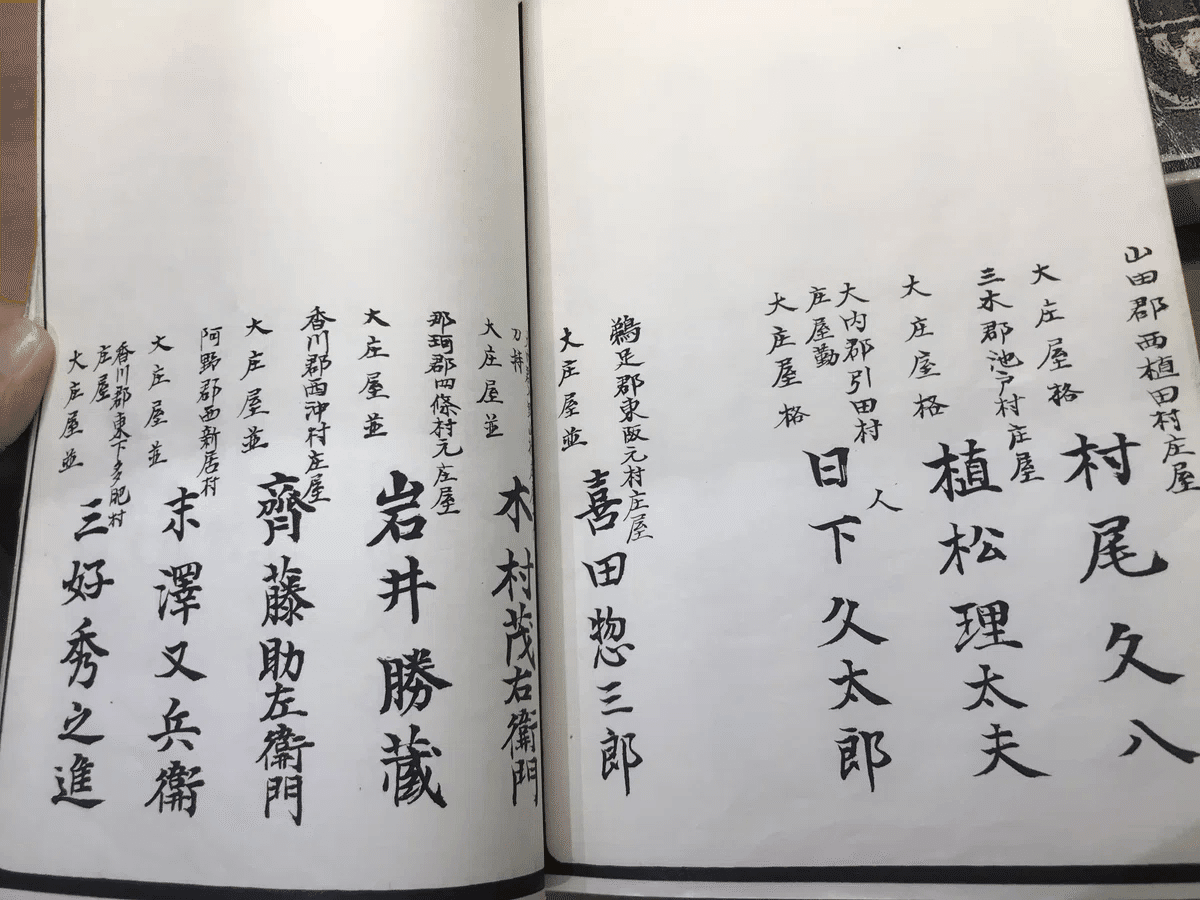 山田郡西植田村庄屋
村尾久八
大庄屋格
三木郡池戸村庄屋
植松理太夫
大庄屋格
人
大内郡引田村
庄屋勤
日下久太郎
大庄屋格
鵜足郡東阪元村庄屋
喜田惣三郎
大庄屋並
刀持
木村茂右衛門
大庄屋並
那珂郡四條村元庄屋
岩井勝蔵
大庄屋並
香川郡西沖村庄屋
齊藤助左衛門
大庄屋並
阿野郡西新居村
末澤又兵衛
大庄屋並
香川郡東下多肥村
庄屋
三好秀之進
大庄屋並